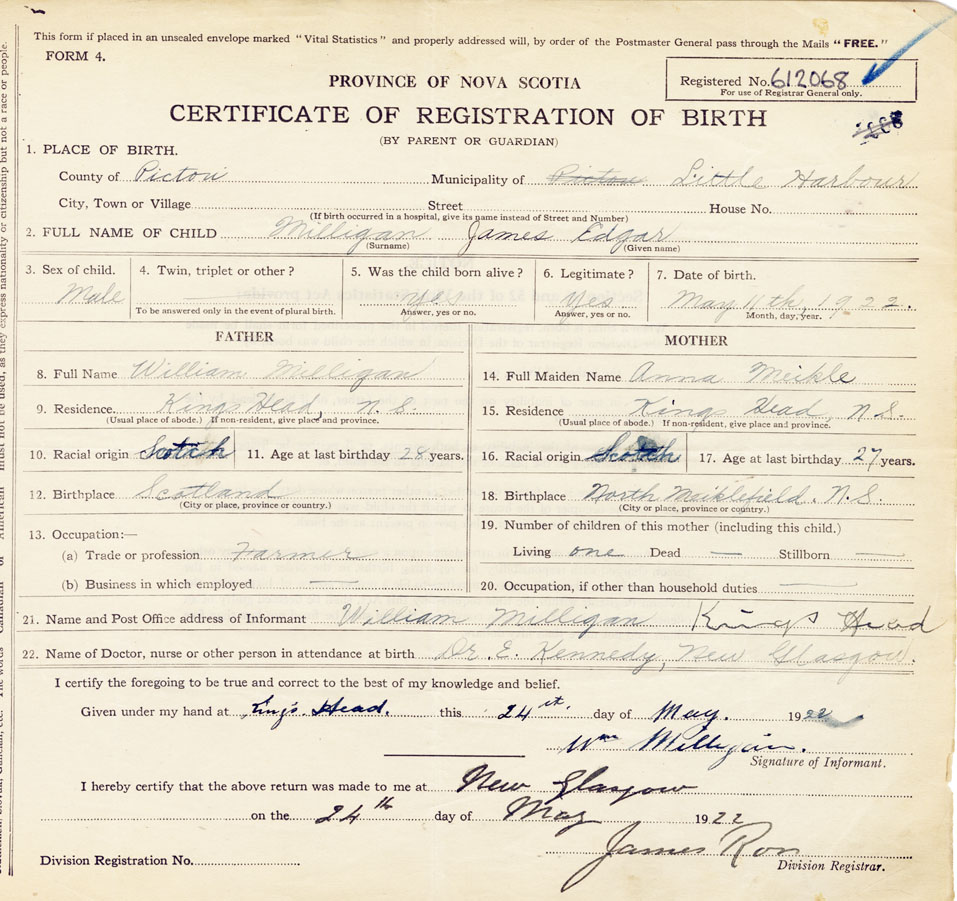 This form if placed in an unsealed envelope marked "Vital Statistics" and properly addressed will, by order of the Postmaster General pass through the Mails "FREE."
FORM 4.
PROVINCE OF NOVA SCOTIA
Registered No. 612068
For use of Registrar General only.
CERTIFICATE OF REGISTRATION OF BIRTH
(BY PARENT OR GUARDIAN)
1. PLACE OF BIRTH.
County of Pictou Municipality of Pictou Little Harbour
City, Town or Village Street House No.
(If birth occurred in a hospital, give its name instead of Street and Number)
2. FULL NAME OF CHILD Milligan James Edgar
(Surname) (Given name)
3. Sex of child. 4. Twin, triplet or other? 5. Was the child born alive? 6. Legitimate? 7. Date of birth.
Male Yes Yes May 11th, 1922.
To be answered only in the event of plural birth. Answer, yes or no. Answer, yes or no. Month, day, year.
FATHER MOTHER
8. Full Name William Milligan 14. Full Maiden Name Anna Meikle
9. Residence Kings Head, N.S. 15. Residence Kings Head, N.S.
(Usual place of abode.) If non-resident, give place and province. (Usual place of abode.) If non-resident, give place and province.
10. Racial origin Scotch 11. Age at last birthday 28 years. 16. Racial origin Scotch 17. Age at last birthday 27 years.
12. Birthplace Scotland 18. Birthplace North Meiklefield, N.S.
(City or place, province or country.) (City or place, province or country.)
13. Occupation:— 19. Number of children of this mother (including this child.)
(a) Trade or profession Farmer Living one Dead — Stillborn —
(b) Business in which employed — 20. Occupation, if other than household duties —
21. Name and Post Office address of Informant William Milligan Kings Head
22. Name of Doctor, nurse or other person in attendance at birth Dr. E. Kennedy, New Glasgow.
I certify the foregoing to be true and correct to the best of my knowledge and belief.
Given under my hand at King's Head. this 24st. day of May. 1922
Wm Milligan.
Signature of Informant.
I hereby certify that the above return was made to me at New Glasgow
on the 24th day of May 1922
James Ron
Division Registration No. Division Registrar.